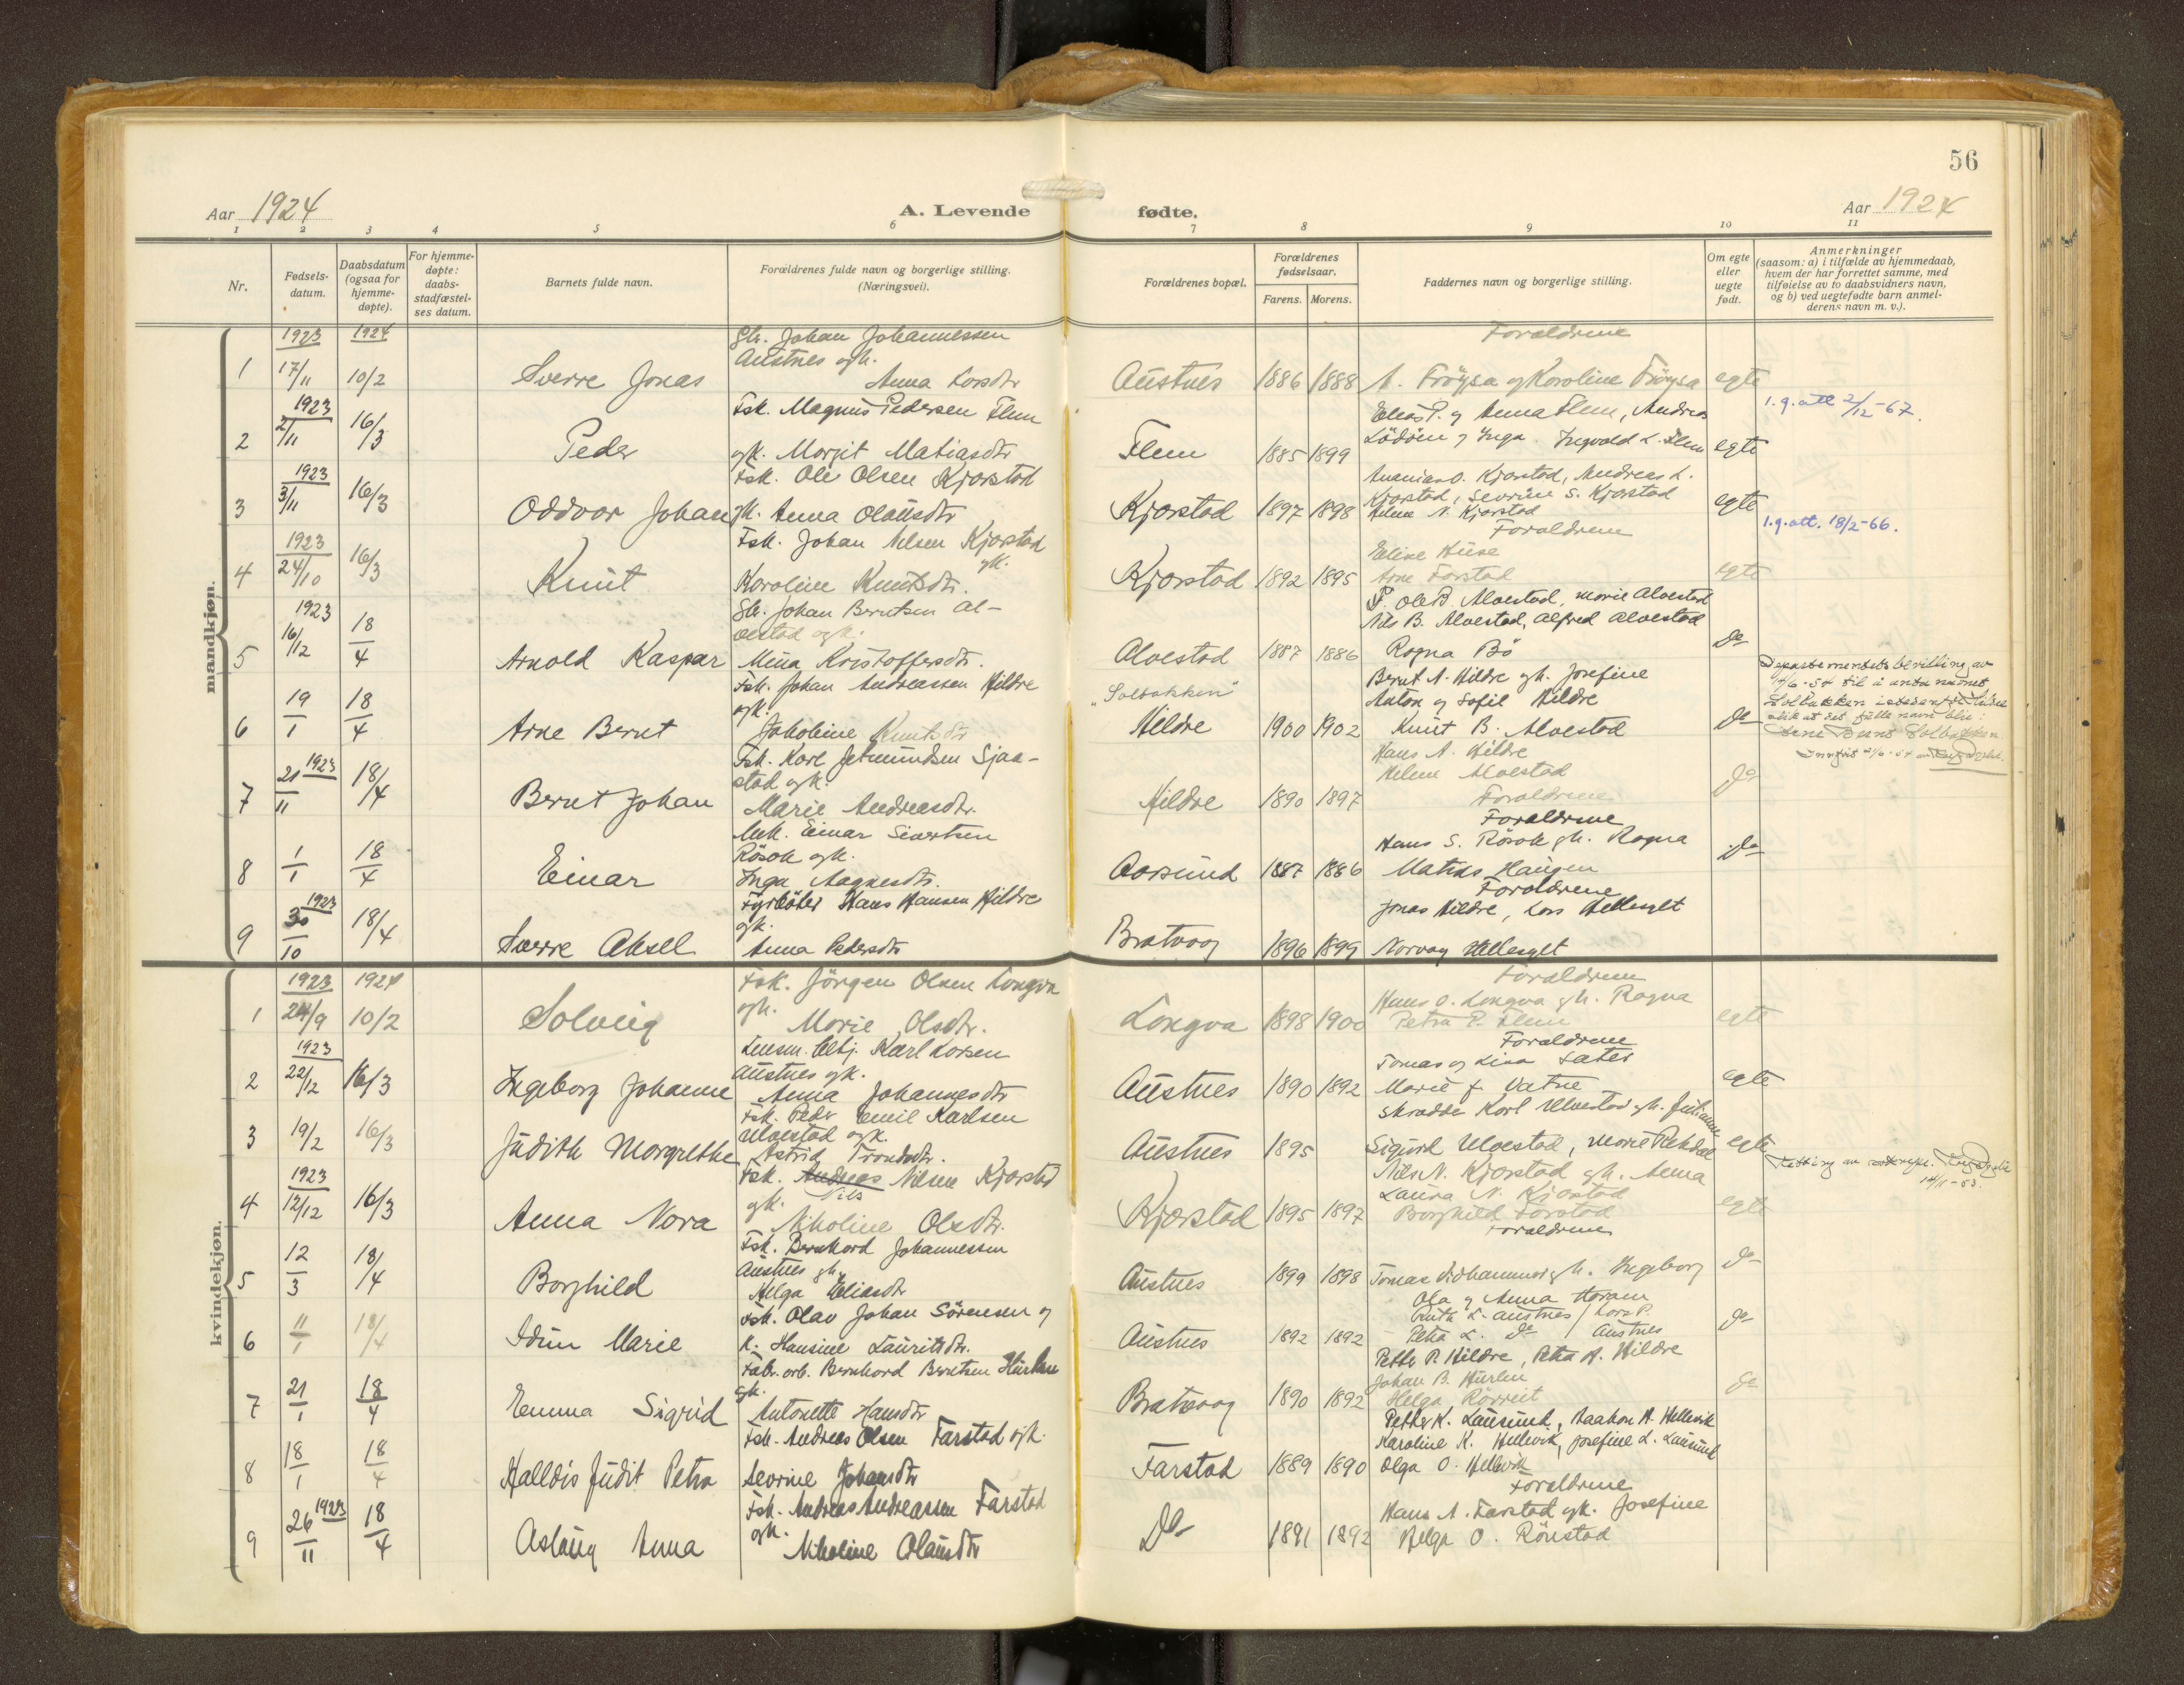 56
Aar 1924
A. Levende fødte.
Aar 1924
1 2 3 4 5 6 7 8 9 10 11
Nr.
Fødsels-
datum.
Daabsdatum
(ogsaa for
hjemme-
døpte).
For hjemme-
døpte:
daabs-
stadfæstel-
ses datum.
Barnets fulde navn.
Forældrenes fulde navn og borgerlige stilling.
(Næringsvei).
Forældrenes bopæl.
Forældrenes
fødselsaar.
Farens. Morens.
Faddernes navn og borgerlige stilling.
Om egte
eller
uegte
født.
Anmerkninger
(saasom: a) i tilfælde av hjemmedaab,
hvem der har forrettet samme, med
tilføielse av to daabsvidners navn,
og b) ved uegtefødte barn anmel-
derens navn m. v.).
mandkjøn.
1923 1924
1 17/11 10/2 Sverre Jonas
Gbr. Johan Johannessen
Austnes ogh.
Anna Larsdtr
Austnes 1886 1888
Forældrene
A. Frøysa og Karoline Frøysa egte
1923
2 2/11 16/3 Peder
Fsk. Magnus Pedersen Flem
ogh. Margit Matiasdtr
Flem 1885 1899
Elias P. og Anna Flem, Andreas
Lödöen og Inga. Ingvald L. Flem egte
1.g. att 2/12-67.
1923
3 3/11 16/3 Oddvar Johan
Fsk. Ole Olsen Kjørstad
gh. Anna Olausdtr
Kjørstad 1897 1898
Ananias O. Kjørstad, Andreas L.
Kjørstad, Sevrine S. Kjørstad
Helene N. Kjørstad egte
1.g. att. 18/2-66.
1923
4 24/10 16/3 Knut
Fsk. Johan Nilsen Kjørstad
gh.
Karoline Knutsdtr.
Kjørstad 1892 1895
Forældrene
Eline Huse
Arne Farstad egte
1923
5 16/12 18/4 Arnold Kaspar
Gbr. Johan Berntsen Al-
vestad ogh.
Mina Kristoffersdtr.
Alvestad 1887 1886
F. Ole B. Alvestad, Marie Alvestad
Nils B. Alvestad, Alfred Alvestad
Ragna Bö do
6 19/1 18/4 Arne Bernt
Fsk. Johan Andreassen Hildre
ogh.
Jakobine Knutsdtr
"Solbakken"
Hildre 1900 1902
Bernt A. Hildre gh. Josefine
Anton og Sofie Hildre
Knut B. Alvestad do
Departementets bevilling av
14/6-54 til å anta navnet
Solbakken istedenfor Hildre
slik at det fulle navn blir:
Arne Bernt Solbakken.
1923
7 21/11 18/4 Bernt Johan
Fsk. Karl Jetmundsen Sjaa-
stad ogh.
Marie Andreasdtr.
Hildre 1890 1897
Hans A. Hildre
Helene Alvestad
Forældrene do
8 1/1 18/4 Einar
Mek. Einar Sivertsen
Rösok ogh.
Inga Magnesdtr.
Aarsund 1887 1886
Forældrene
Hans S. Rösok gh. Ragna
Matias Haugen do
1923
9 30/10 18/4 Sverre Aksel
Fyrböter Hans Hansen Hildre
gh.
Anna Pedersdtr
Bratvaag 1896 1899
Forældrene
Jonas Hildre, Lars Hellesylt
Norvag Hellesylt
kvindekjøn.
1923 1924
1 24/9 10/2 Solveig
Fsk. Jörgen Olsen Longva
ogh.
Marie Olsdtr.
Longva 1898 1900
Forældrene
Hans O. Longva gh. Ragna
Petra P. Flem egte
1923
2 22/12 16/3 Ingeborg Johanne
Lensm. betj. Karl Larsen
Austnes ogh.
Anna Johannesdtr
Austnes 1890 1892
Forældrene
Tomas og Lina Sæter
Marie J. Vatne egte
3 19/2 16/3 Judith Margrethe
Fsk. Peder Emil Karlsen
Ulvestad ogh.
Astrid Trondsdtr.
Austnes 1895
Skrædder Karl Ulvestad gh. Julianne
Sigurd Ulvestad, Marie Rekdal egte
1923
4 12/12 16/3 Anna Nora
Fsk. Andreas Nilsen Kjørstad
Nils
gh.
Nikoline Olsdtr.
Kjørstad 1895 1897
Nils N. Kjørstad gh. Anna
Laura N. Kjørstad
Borghild Farstad egte
14/11-53.
5 12/3 18/4 Borghild
Fsk. Bernhard Johannessen
Austnes gh.
Helga Eliasdtr
Austnes 1899 1898
Forældrene
Tomas Vidhammer gh. Ingeborg do
6 11/1 18/4 Idun Marie
Fsk. Olav Johan Sörensen og
K. Hansine Lauritsdtr.
Austnes 1892 1892
Ola og Anna Haram
Ruth L. Austnes / Lars P.
Petra L. do / Austnes do
7 21/1 18/4 Emma Sigrid
Fabr. arb. Bernhard Berntsen Hurlen
gh.
Antonette Hansdtr
Bratvaag 1890 1892
Petter P. Hildre, Petra A. Hildre
Johan B. Hurlen
Helga Rörveit do
8 18/1 18/4 Halldis Judit Petra
Fsk. Andreas Olsen Farstad ogh.
Sevrine Johansdtr
Farstad 1889 1890
Petter K. Lausund, Haakon A. Hellevik
Karoline K. Hellevik, Josefine L. Lausund
Olga O. Hellevik
1923
9 26/11 18/4 Aslaug Anna
Fsk. Andreas Andreassen Farstad
gh.
Nikoline Olausdtr
Do 1891 1892
Forældrene
Hans A. Farstad gh. Josefine
Helga O. Rönstad